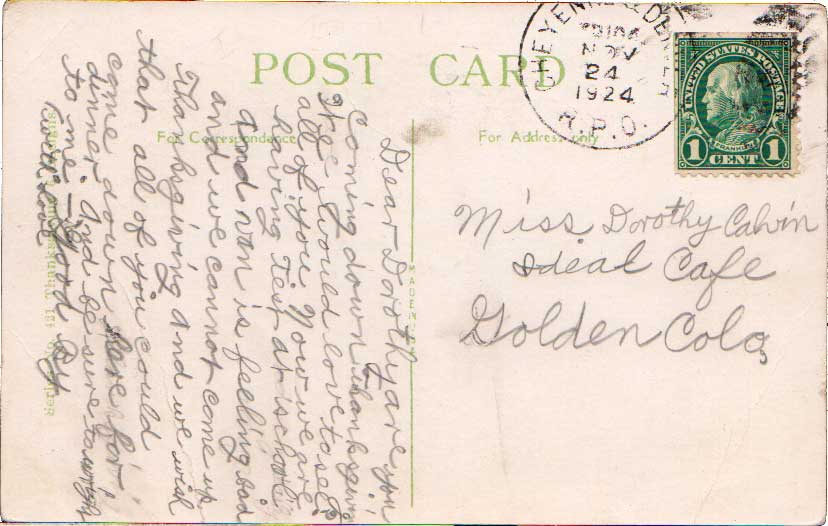 POST CARD
For Correspondence
For Address only
CHEYENNE & DENVER
NOV
24
1924
R.P.O.
UNITED STATES POSTAGE
FRANKLIN
1 CENT 1
Miss Dorothy Calvin
Ideal Cafe
Golden Colo.
Dear Dorothy are you
coming down Thanksgivin
I would love to see
all of you Now we are
having test at school
and nan is feeling bad
and we cannot come up
Thanksgiving and we wish
that all of you could
come down here for
dinner. And be sure to
to me. — Good By
MADE IN
Thanksgiving